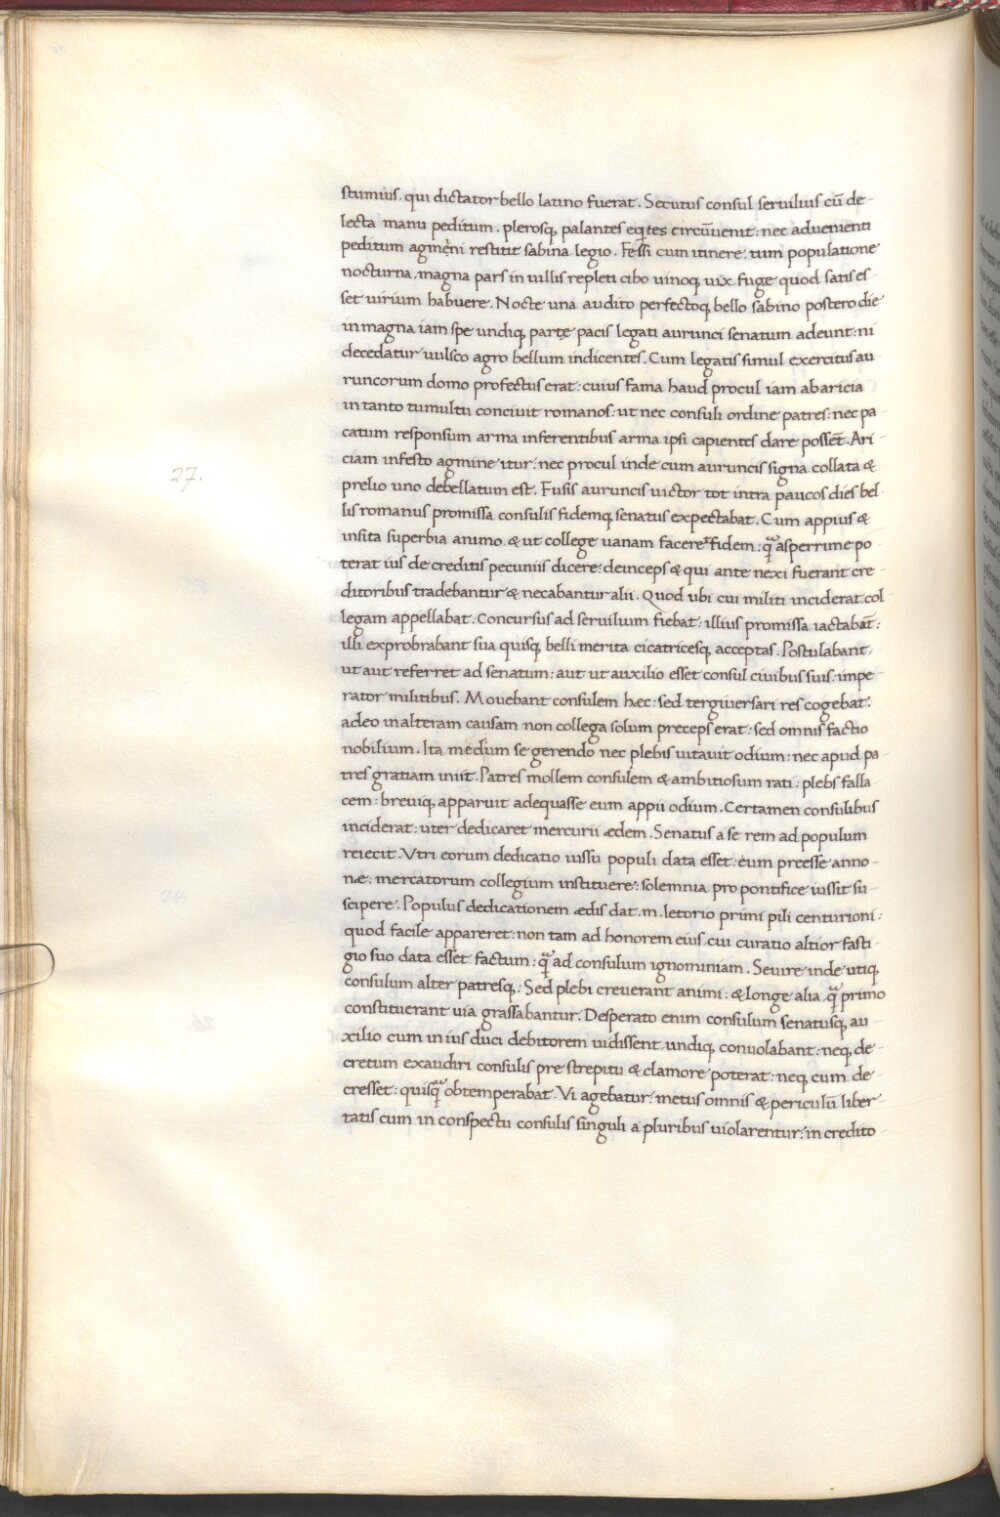 stumius. qui dictator bello latino fuerat. Secutus consul seruilius cū de-
lecta manu peditum. plerosq; palantes eqites circūuenit: nec aduenienti
peditum agmęni restitit sabina legio. Fessi cum itinere: tum populatione
nocturna. magna pars in uillis repleti cibo uinoq; uix fuge quod satis es-
set uirium habuere. Nocte una audito perfectoq; bello sabino postero die
in magna iam spe undiq; partę pacis legati aurunci senatum adeunt: ni
decedatur uulsco agro bellum indicentes. Cum legatis simul exercitus au
runcorum domo profectus erat: cuius fama haud procul iam ab aricia
in tanto tumultu conciuit romanos: ut nec consuli ordine patres: nec pa-
catum responsum arma inferentibus arma ipsi capientes dare possēt. Ari-
ciam infesto agmine itur: nec procul inde cum auruncis signa collata &
prelio uno debellatum est. Fusis auruncis uictor tot intra paucos dies bel-
27.
lis romanus promissa consulis fidemq; senatus expectabat. Cum appius &
insita superbia animo. & ut college uanam faceret fidem: q̄ asperrime po-
terat ius de creditis pecuniis dicere: deinceps & qui ante nexi fuerant cre-
ditoribus tradebantur & necabantur alii. Quod ubi cui militi inciderat col
legam appellabat. Concursus ad seruilium fiebat: illius promissa iactabāt:
illi exprobrabant sua quisq; belli merita cicatricesq; acceptas. Postulabant.
ut aut referret ad senatum: aut ut auxilio esset consul ciuibus suis: impe-
rator militibus. Mouebant consulem hæc: sed tergiuersari res cogebat:
adeo in alteram causam non collega solum preceps erat: sed omnis factio
nobilium. Ita medium se gerendo nec plebis uitauit odium: nec apud pa-
tres gratiam iniit. Patres mollem consulem & ambitiosum rati: plebs falla
cem: breuiq; apparuit adequasse eum appii odium. Certamen consulibus
inciderat: uter dedicaret mercurii ædem. Senatus a se rem ad populum
reiecit. Vtri eorum dedicatio iussu populi data esset: eum preesse anno-
næ: mercatorum collegium instituere: solemnia pro pontifice iussit su-
scipere. Populus dedicationem ædis dat .m. letorio primi pili centurioni:
quod facile appareret: non tam ad honorem eius. cui curatio altior fasti-
gio suo data esset factum: q̄ ad consulum ignominiam. Seuire inde utiq;
consulum alter patresq;: Sed plebi creuerant animi: & longe alia q̄ primo
constituerant uia grassabantur. Desperato enim consulum senatusq; au-
xilio cum in ius duci debitorem uidissent undiq; conuolabant: neq; de-
cretum exaudiri consulis pre strepitu & clamore poterat: neq; cum de-
cresset: quisq̄ obtemperabat. Vi agebatur: metus omnis & periculū liber-
tatis cum in conspectu consulis singuli a pluribus uiolarentur: in credito-